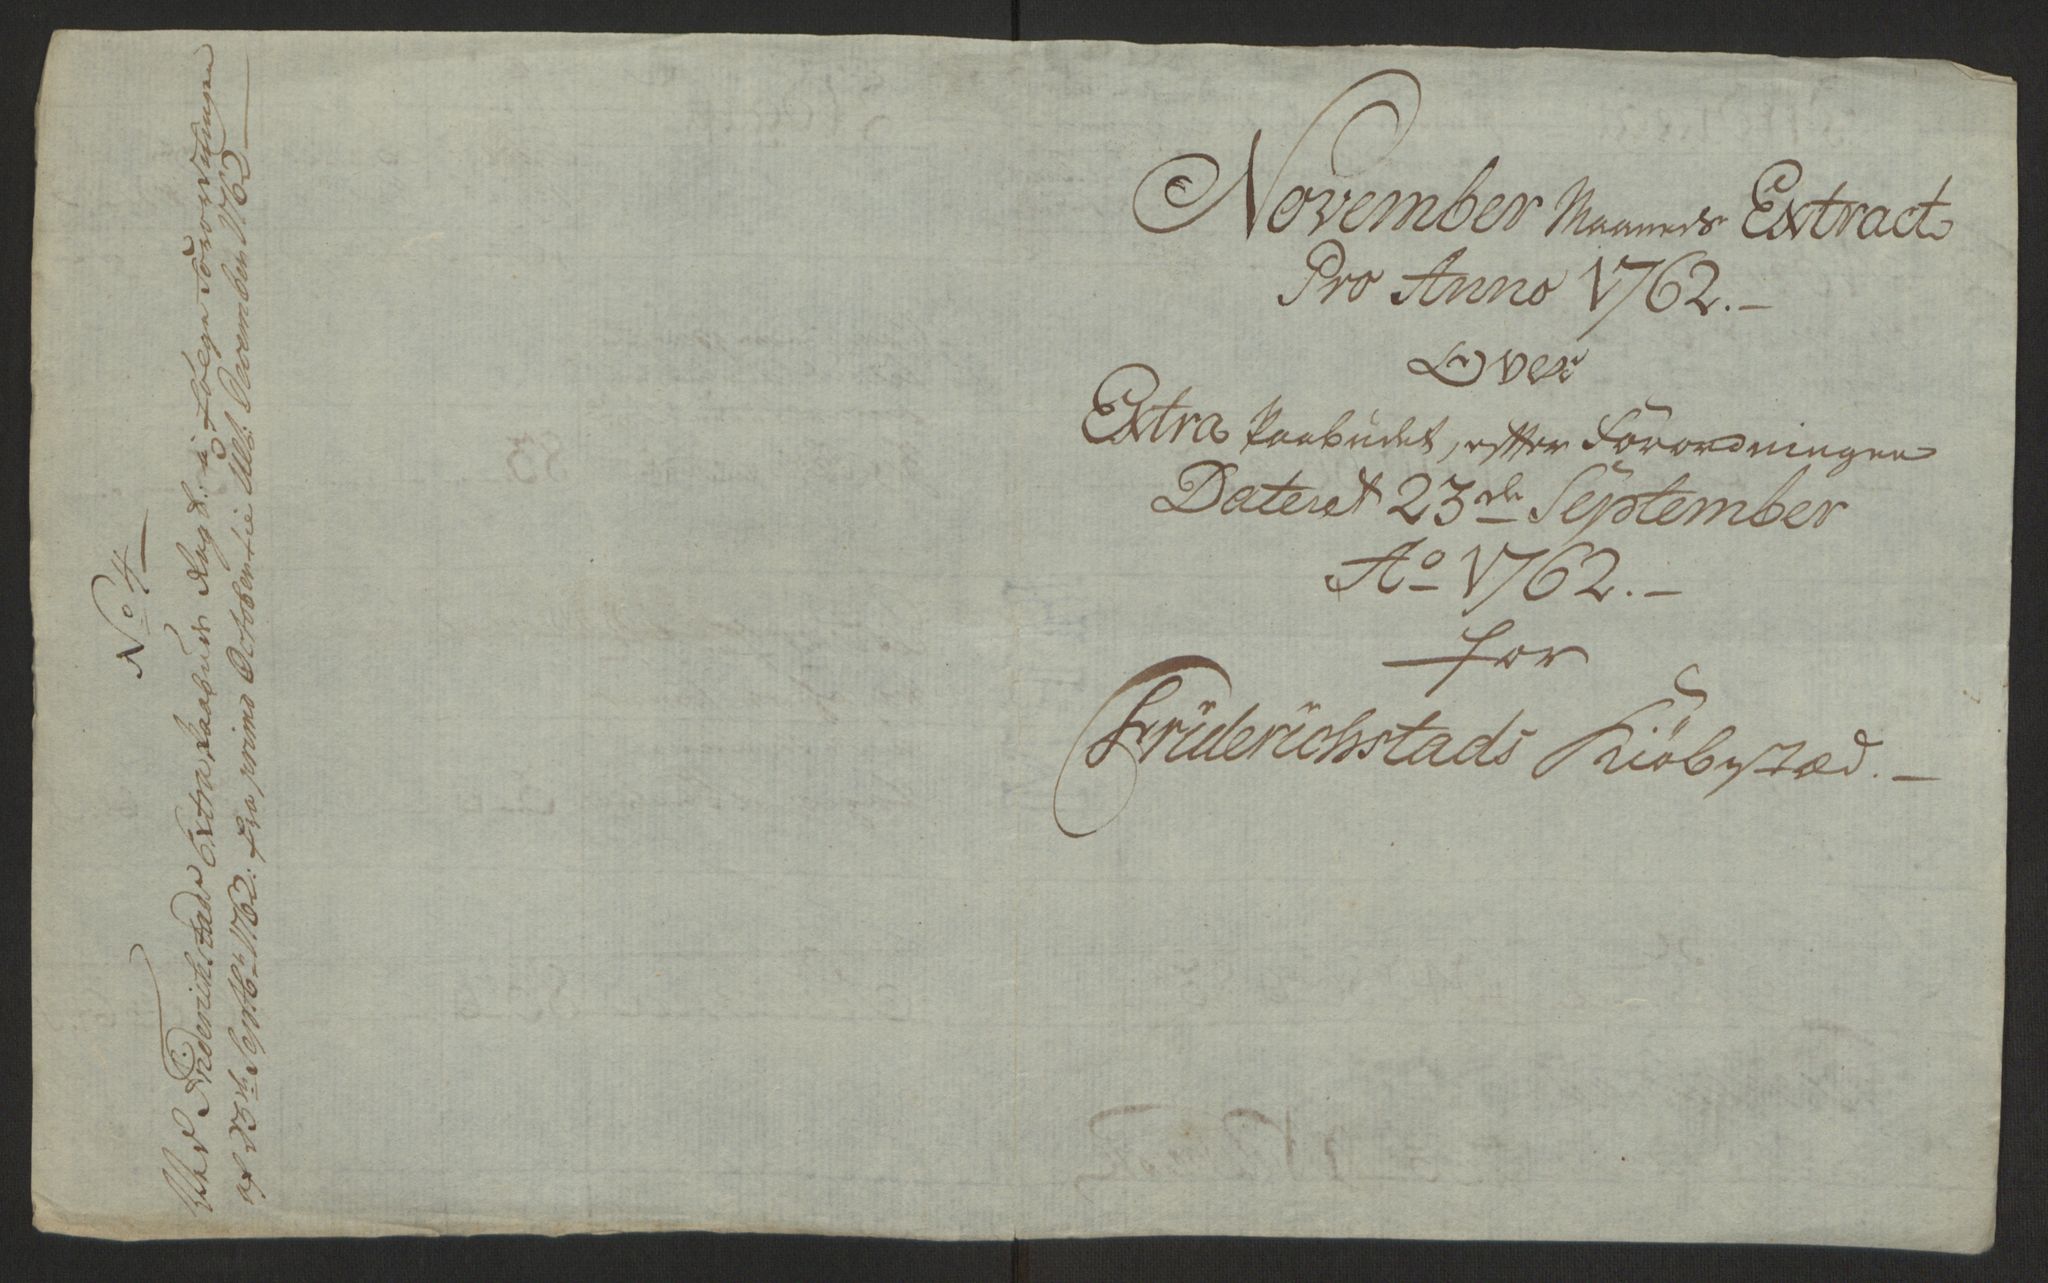 No 4
Ved Friderichstads Extra Paabuds Regsk: à følge Forordningen
af 23de Septbr 1762. fra primo October til Ult: November 1762
November Maaneds Extract
Pro Anno 1762.
Over
Extra Paabudet, efter Forordningen
Dateret 23de September
Ao 1762.
for
Friderichstads Kiöbstæd.